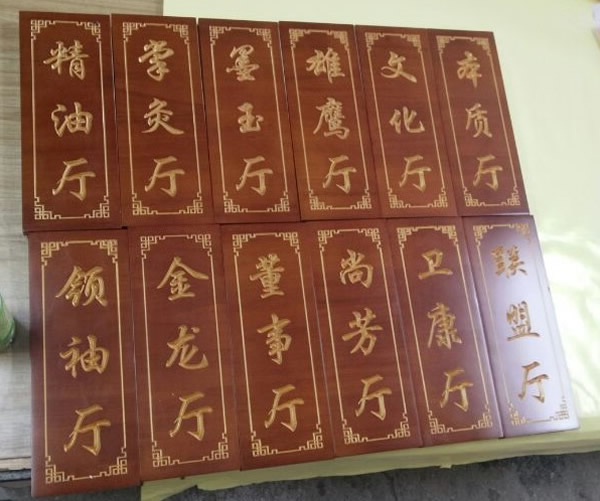 精油厅
掌灸厅
墨玉厅
雄鹰厅
文化厅
本质厅
领袖厅
金龙厅
董事厅
尚芳厅
卫康厅
联盟厅